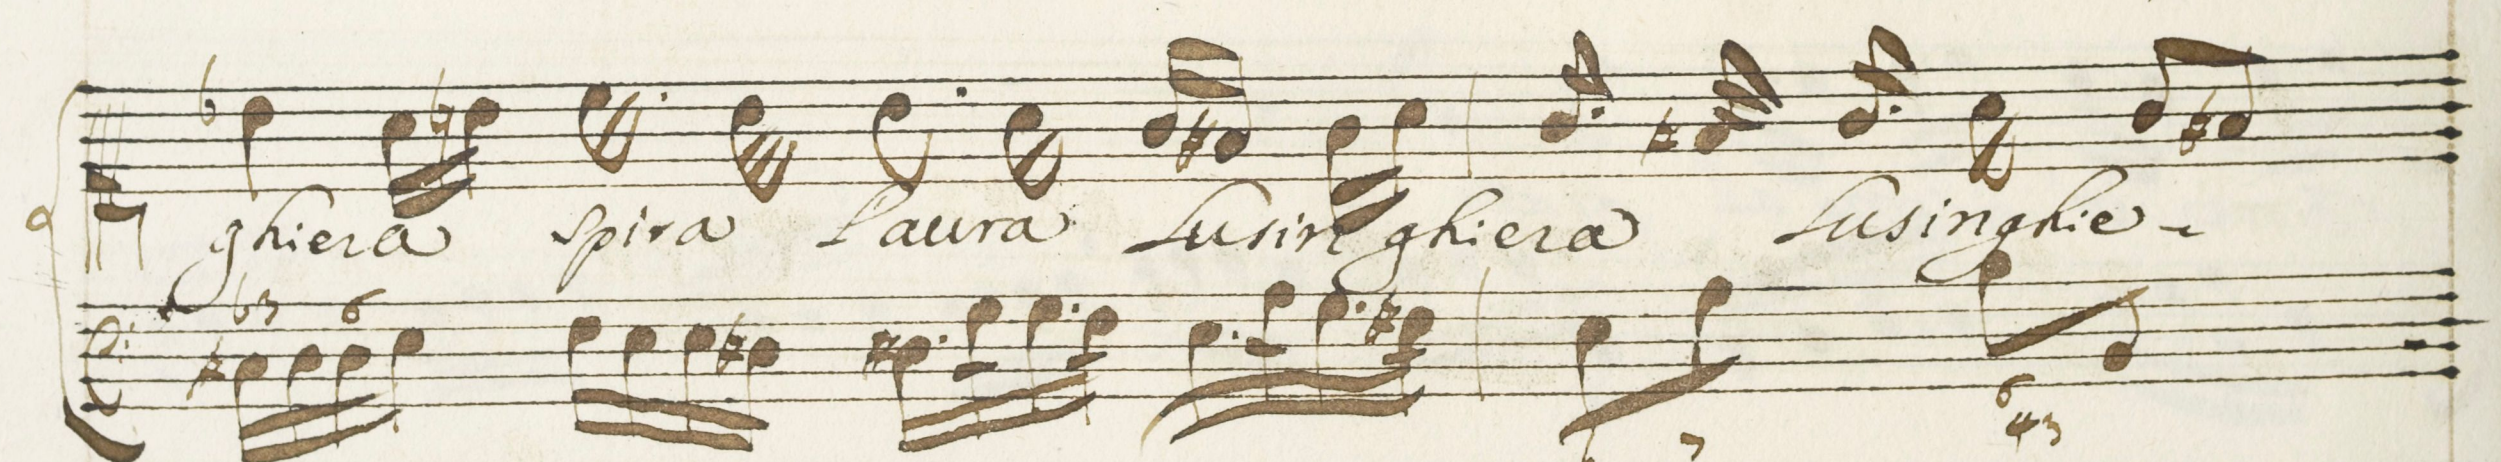 ghiera spira l'aura lusinghiera lusinghie -
b3 6
6
7
43